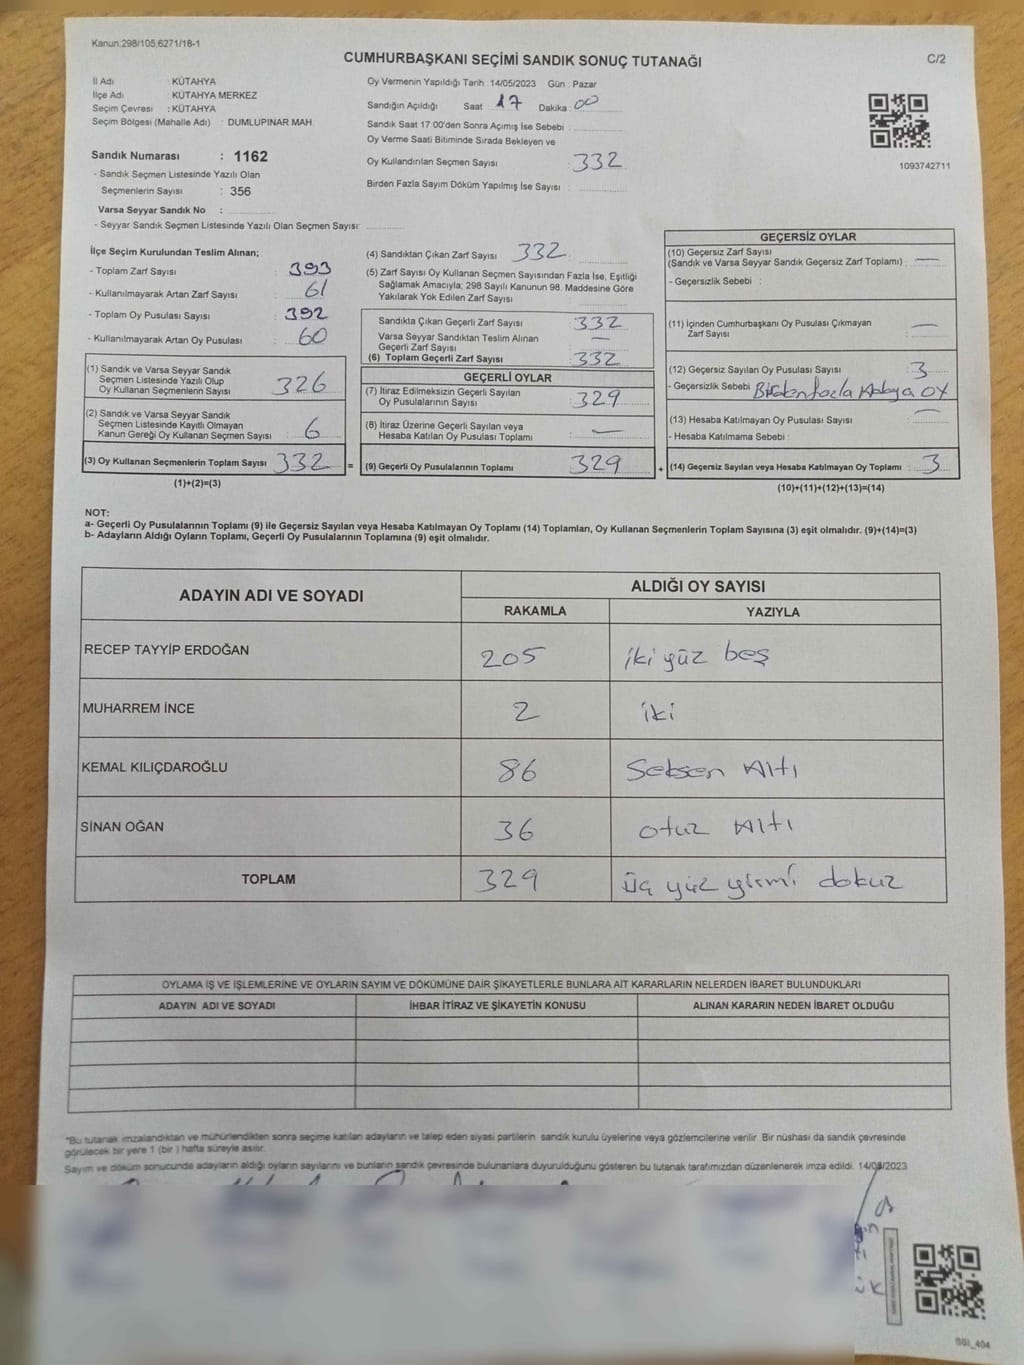 Kanun:298/105,6271/18-1
CUMHURBAŞKANI SEÇİMİ SANDIK SONUÇ TUTANAĞI
C/2
İl Adı : KÜTAHYA
İlçe Adı : KÜTAHYA MERKEZ
Seçim Çevresi : KÜTAHYA
Seçim Bölgesi (Mahalle Adı) : DUMLUPINAR MAH
Sandık Numarası : 1162
- Sandık Seçmen Listesinde Yazılı Olan
Seçmenlerin Sayısı : 356
Varsa Seyyar Sandık No :
- Seyyar Sandık Seçmen Listesinde Yazılı Olan Seçmen Sayısı:
Oy Vermenin Yapıldığı Tarih : 14/05/2023 Gün : Pazar
Sandığın Açıldığı Saat 17 Dakika : 00
Sandık Saat 17:00'den Sonra Açımış İse Sebebi :
Oy Verme Saati Bitiminde Sırada Bekleyen ve
Oy Kullandırılan Seçmen Sayısı : 332
Birden Fazla Sayım Döküm Yapılmış İse Sayısı :
1093742711
İlçe Seçim Kurulundan Teslim Alınan;
- Toplam Zarf Sayısı : 393
- Kullanılmayarak Artan Zarf Sayısı : 61
- Toplam Oy Pusulası Sayısı : 392
- Kullanılmayarak Artan Oy Pusulası : 60
(1) Sandık ve Varsa Seyyar Sandık
Seçmen Listesinde Yazılı Olup
Oy Kullanan Seçmenlerin Sayısı : 326
(2) Sandık ve Varsa Seyyar Sandık
Seçmen Listesinde Kayıtlı Olmayan
Kanun Gereği Oy Kullanan Seçmen Sayısı : 6
(3) Oy Kullanan Seçmenlerin Toplam Sayısı : 332 =
(1)+(2)=(3)
(4) Sandıktan Çıkan Zarf Sayısı : 332
(5) Zarf Sayısı Oy Kullanan Seçmen Sayısından Fazla İse, Eşitliği
Sağlamak Amacıyla; 298 Sayılı Kanunun 98. Maddesine Göre
Yakılarak Yok Edilen Zarf Sayısı :
Sandıkta Çıkan Geçerli Zarf Sayısı : 332
Varsa Seyyar Sandıktan Teslim Alınan
Geçerli Zarf Sayısı : —
(6) Toplam Geçerli Zarf Sayısı : 332
GEÇERLİ OYLAR
(7) İtiraz Edilmeksizin Geçerli Sayılan
Oy Pusulalarının Sayısı : 329
(8) İtiraz Üzerine Geçerli Sayılan veya
Hesaba Katılan Oy Pusulası Toplamı : —
(9) Geçerli Oy Pusulalarının Toplamı : 329 +
GEÇERSİZ OYLAR
(10) Geçersiz Zarf Sayısı
(Sandık ve Varsa Seyyar Sandık Geçersiz Zarf Toplamı) : —
- Geçersizlik Sebebi :
(11) İçinden Cumhurbaşkanı Oy Pusulası Çıkmayan
Zarf Sayısı : —
(12) Geçersiz Sayılan Oy Pusulası Sayısı : 3
- Geçersizlik Sebebi : Birden fazla Adaya OY
(13) Hesaba Katılmayan Oy Pusulası Sayısı : —
- Hesaba Katılmama Sebebi :
(14) Geçersiz Sayılan veya Hesaba Katılmayan Oy Toplamı : 3
(10)+(11)+(12)+(13)=(14)
NOT:
a- Geçerli Oy Pusulalarının Toplamı (9) ile Geçersiz Sayılan veya Hesaba Katılmayan Oy Toplamı (14) Toplamları, Oy Kullanan Seçmenlerin Toplam Sayısına (3) eşit olmalıdır. (9)+(14)=(3)
b- Adayların Aldığı Oyların Toplamı, Geçerli Oy Pusulalarının Toplamına (9) eşit olmalıdır.
ADAYIN ADI VE SOYADI
ALDIĞI OY SAYISI
RAKAMLA YAZIYLA
RECEP TAYYİP ERDOĞAN 205 iki yüz beş
MUHARREM İNCE 2 iki
KEMAL KILIÇDAROĞLU 86 Seksen Altı
SİNAN OĞAN 36 otuz Altı
TOPLAM 329 üç yüz yirmi dokuz
OYLAMA İŞ VE İŞLEMLERİNE VE OYLARIN SAYIM VE DÖKÜMÜNE DAİR ŞİKAYETLERLE BUNLARA AİT KARARLARIN NELERDEN İBARET BULUNDUKLARI
ADAYIN ADI VE SOYADI İHBAR İTİRAZ VE ŞİKAYETİN KONUSU ALINAN KARARIN NEDEN İBARET OLDUĞU
*Bu tutanak imzalandıktan ve mühürlendikten sonra seçime katılan adayların ve talep eden siyasi partilerin sandık kurulu üyelerine veya gözlemcilerine verilir. Bir nüshası da sandık çevresinde
görülecek bir yere 1 (bir ) hafta süreyle asılır.
Sayım ve döküm sonucunda adayların aldığı oyların sayılarını ve bunların sandık çevresinde bulunanlara duyurulduğunu gösteren bu tutanak tarafımızdan düzenlenerek imza edildi. 14/05/2023